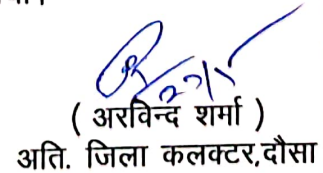 ( अरविन्द शर्मा )
अति. जिला कलक्टर,दौसा